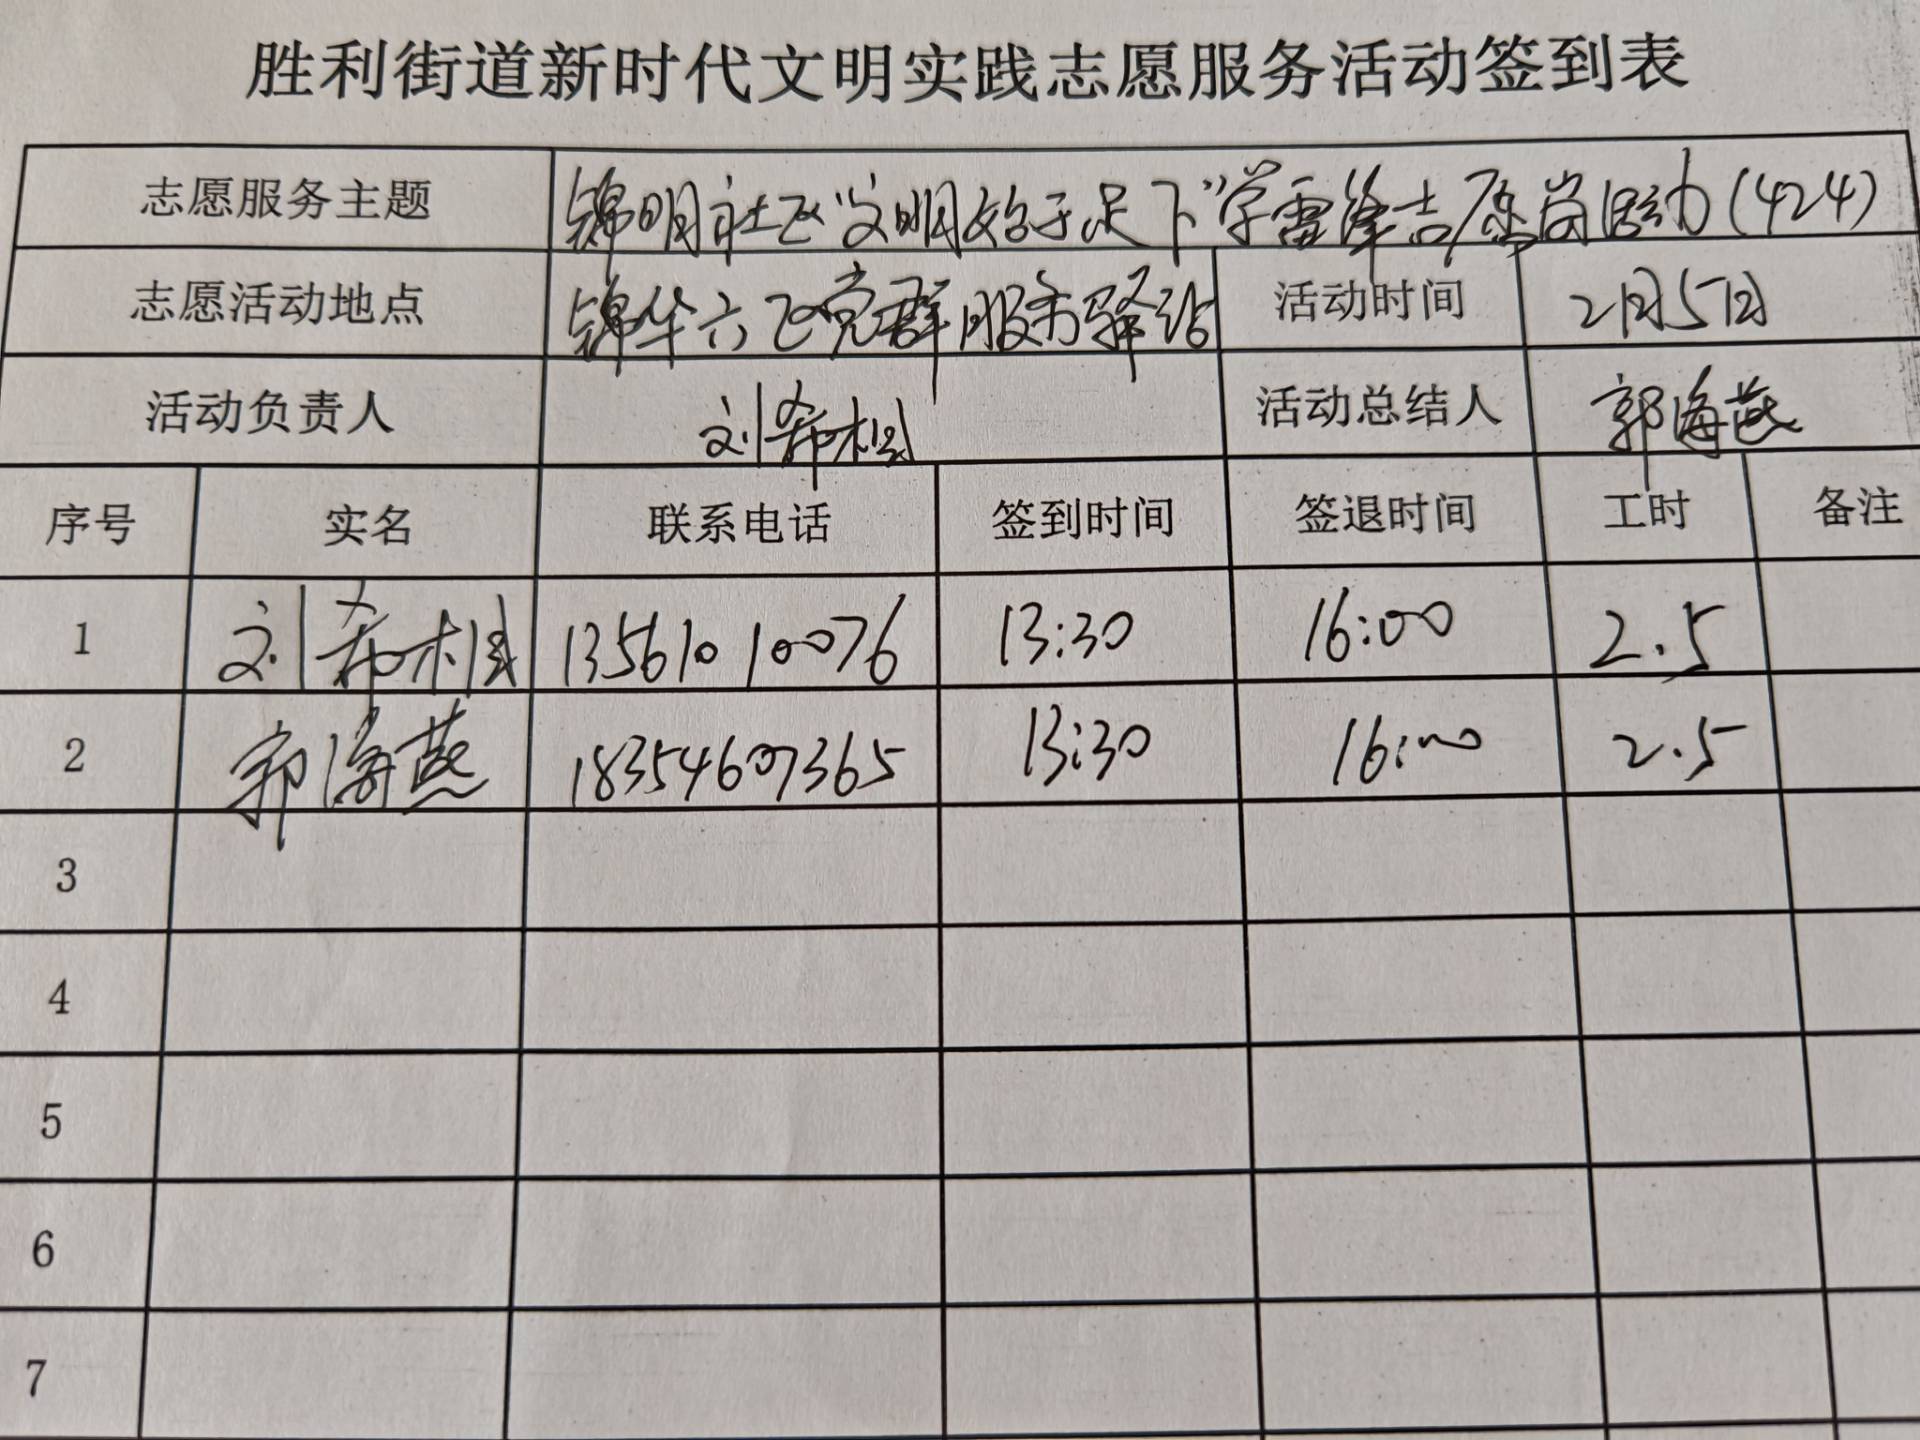 胜利街道新时代文明实践志愿服务活动签到表
志愿服务主题 锦明社区"文明始于足下"学雷锋志愿岗活动(424)
志愿活动地点 锦华六区党群服务驿站 活动时间 2月5日
活动负责人 刘希 活动总结人 郭海燕
序号 实名 联系电话 签到时间 签退时间 工时 备注
1 刘希 13561010076 13:30 16:00 2.5
2 郭海燕 18354607365 13:30 16:00 2.5
3
4
5
6
7